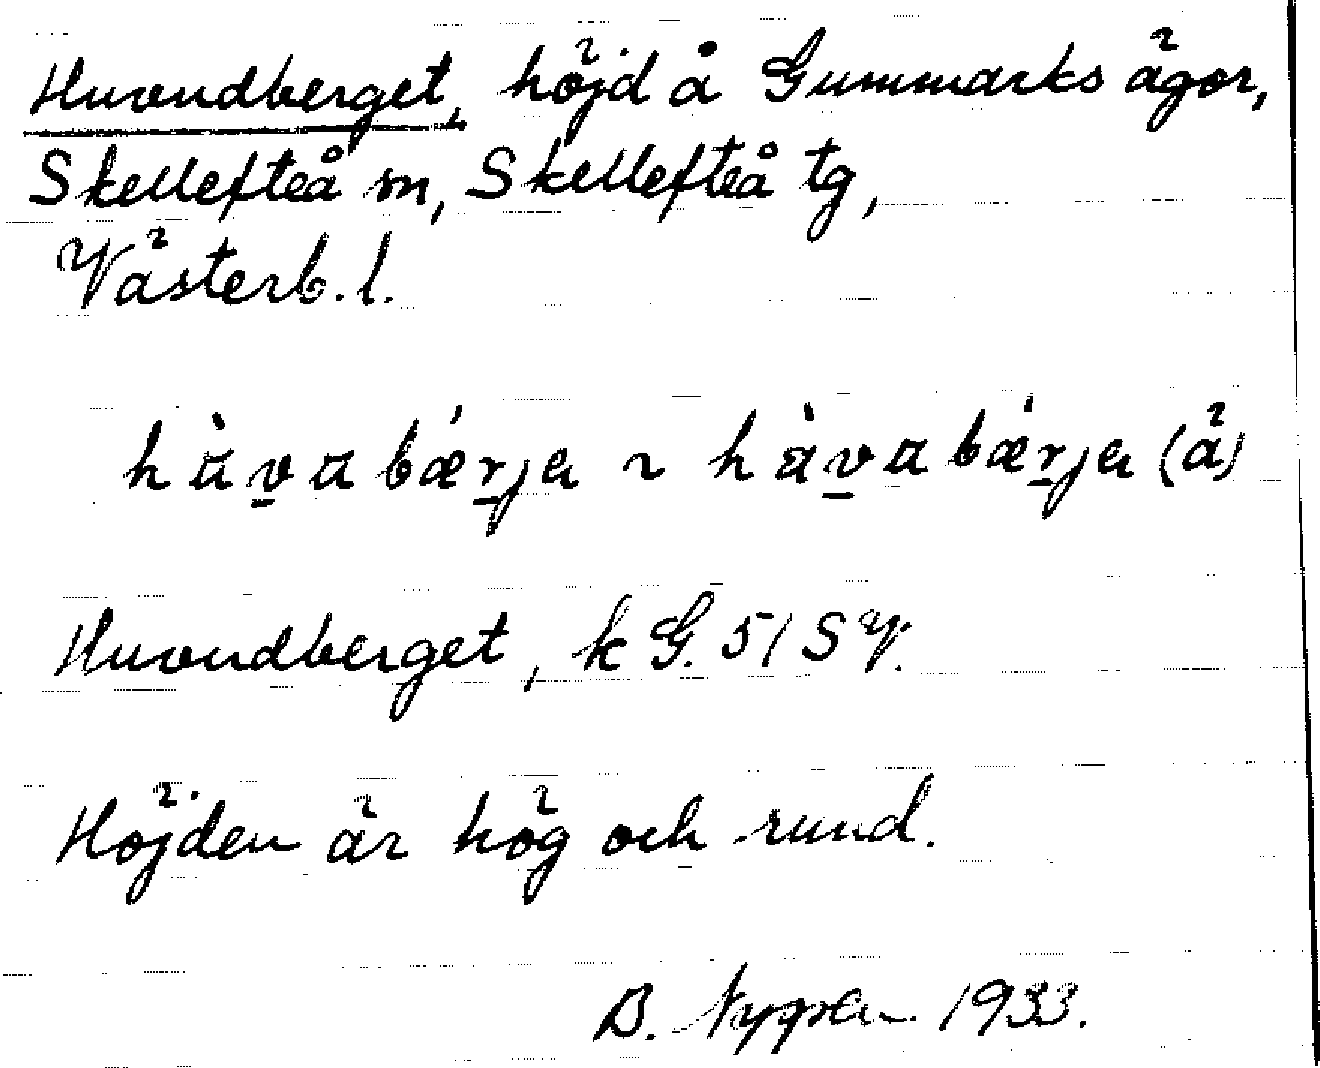 Huvudberget, höjd å Gummarks ägor,
Skellefteå sn, Skellefteå tg,
Västerb. l.
hàvabǽrja ~ hàvabǽrja (å)
Huvudberget, kG. 51 SV.
Höjden är hög och rund.
B. Nygren 1933.